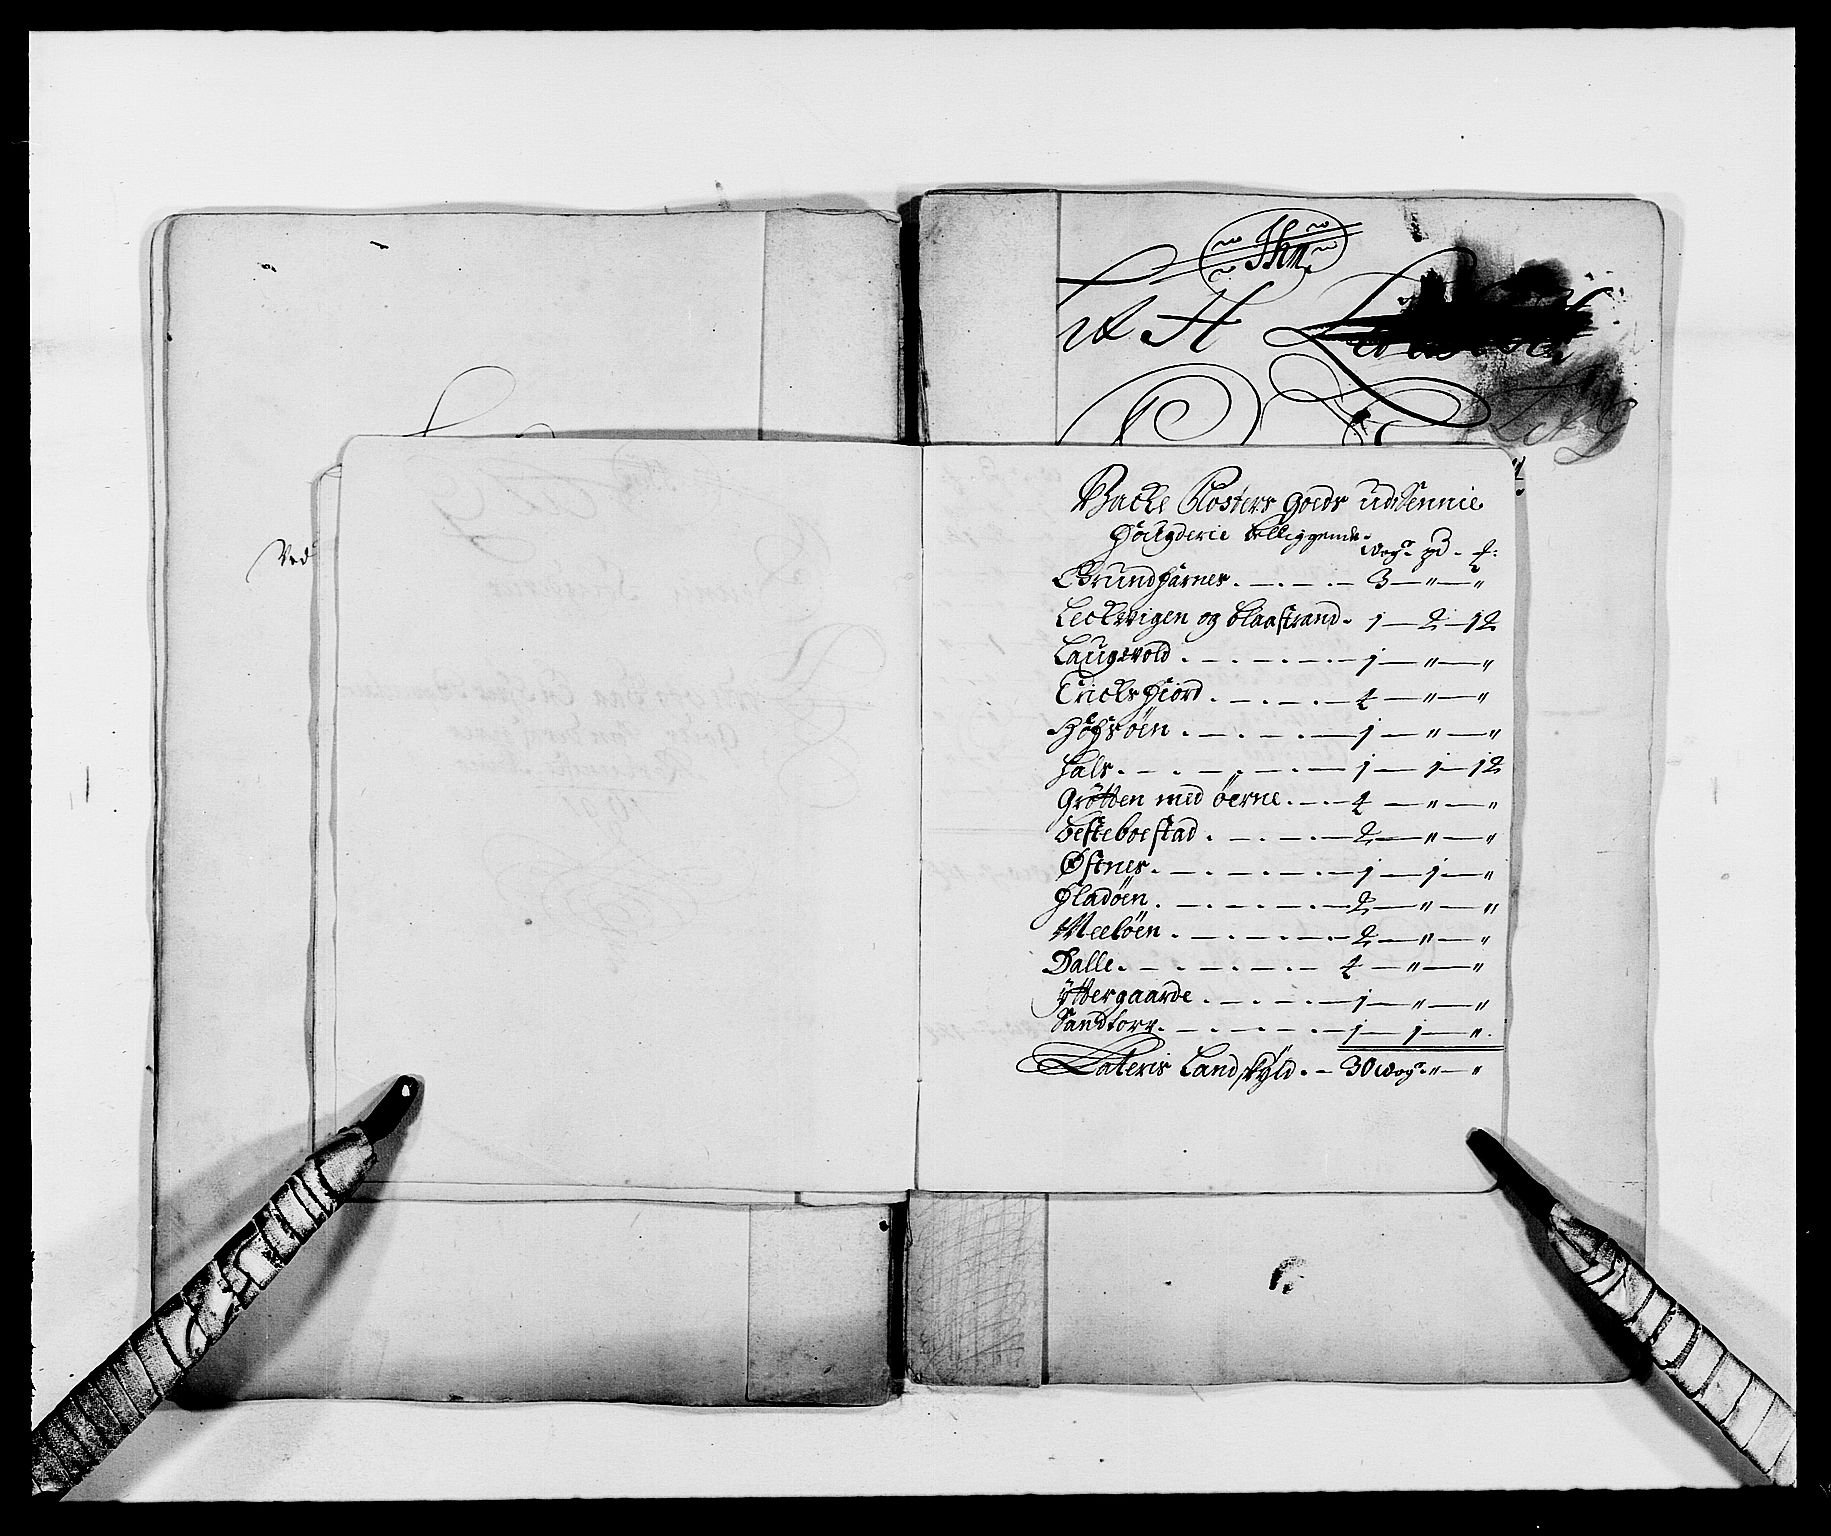 Ved
Backe Closters Goeds udi Sennie
Fougderie belliggende.
wog. pd. ℔:
Grundfarnes . — . — . — 3 — " — "
Leckvigen og Blaastrand . 1 — 2 — 12
Laugsvold . — . — . — . — 1 — " — "
Erichsfiord . — . — . — 4 — " — "
Høfsøen . — . — . — 1 — " — "
Hals . — . — . — . — 1 — 1 — 12
Grøtten med øerne . — . — 4 — " — "
Hesteboestad . — . — . — 2 — " — "
Østnes . — . — . — . — 1 — 1 — "
Fladøen . — . — . — . — 2 — " — "
Meeløen . — . — . — . — 2 — " — "
Dalle . — . — . — . — 4 — " — "
Yttergaarde . — . — . — 1 — " — "
Sandtorr . — . — . — . — 1 — 1 — " .
Lateris Landskyld . — 30 wog. " — "